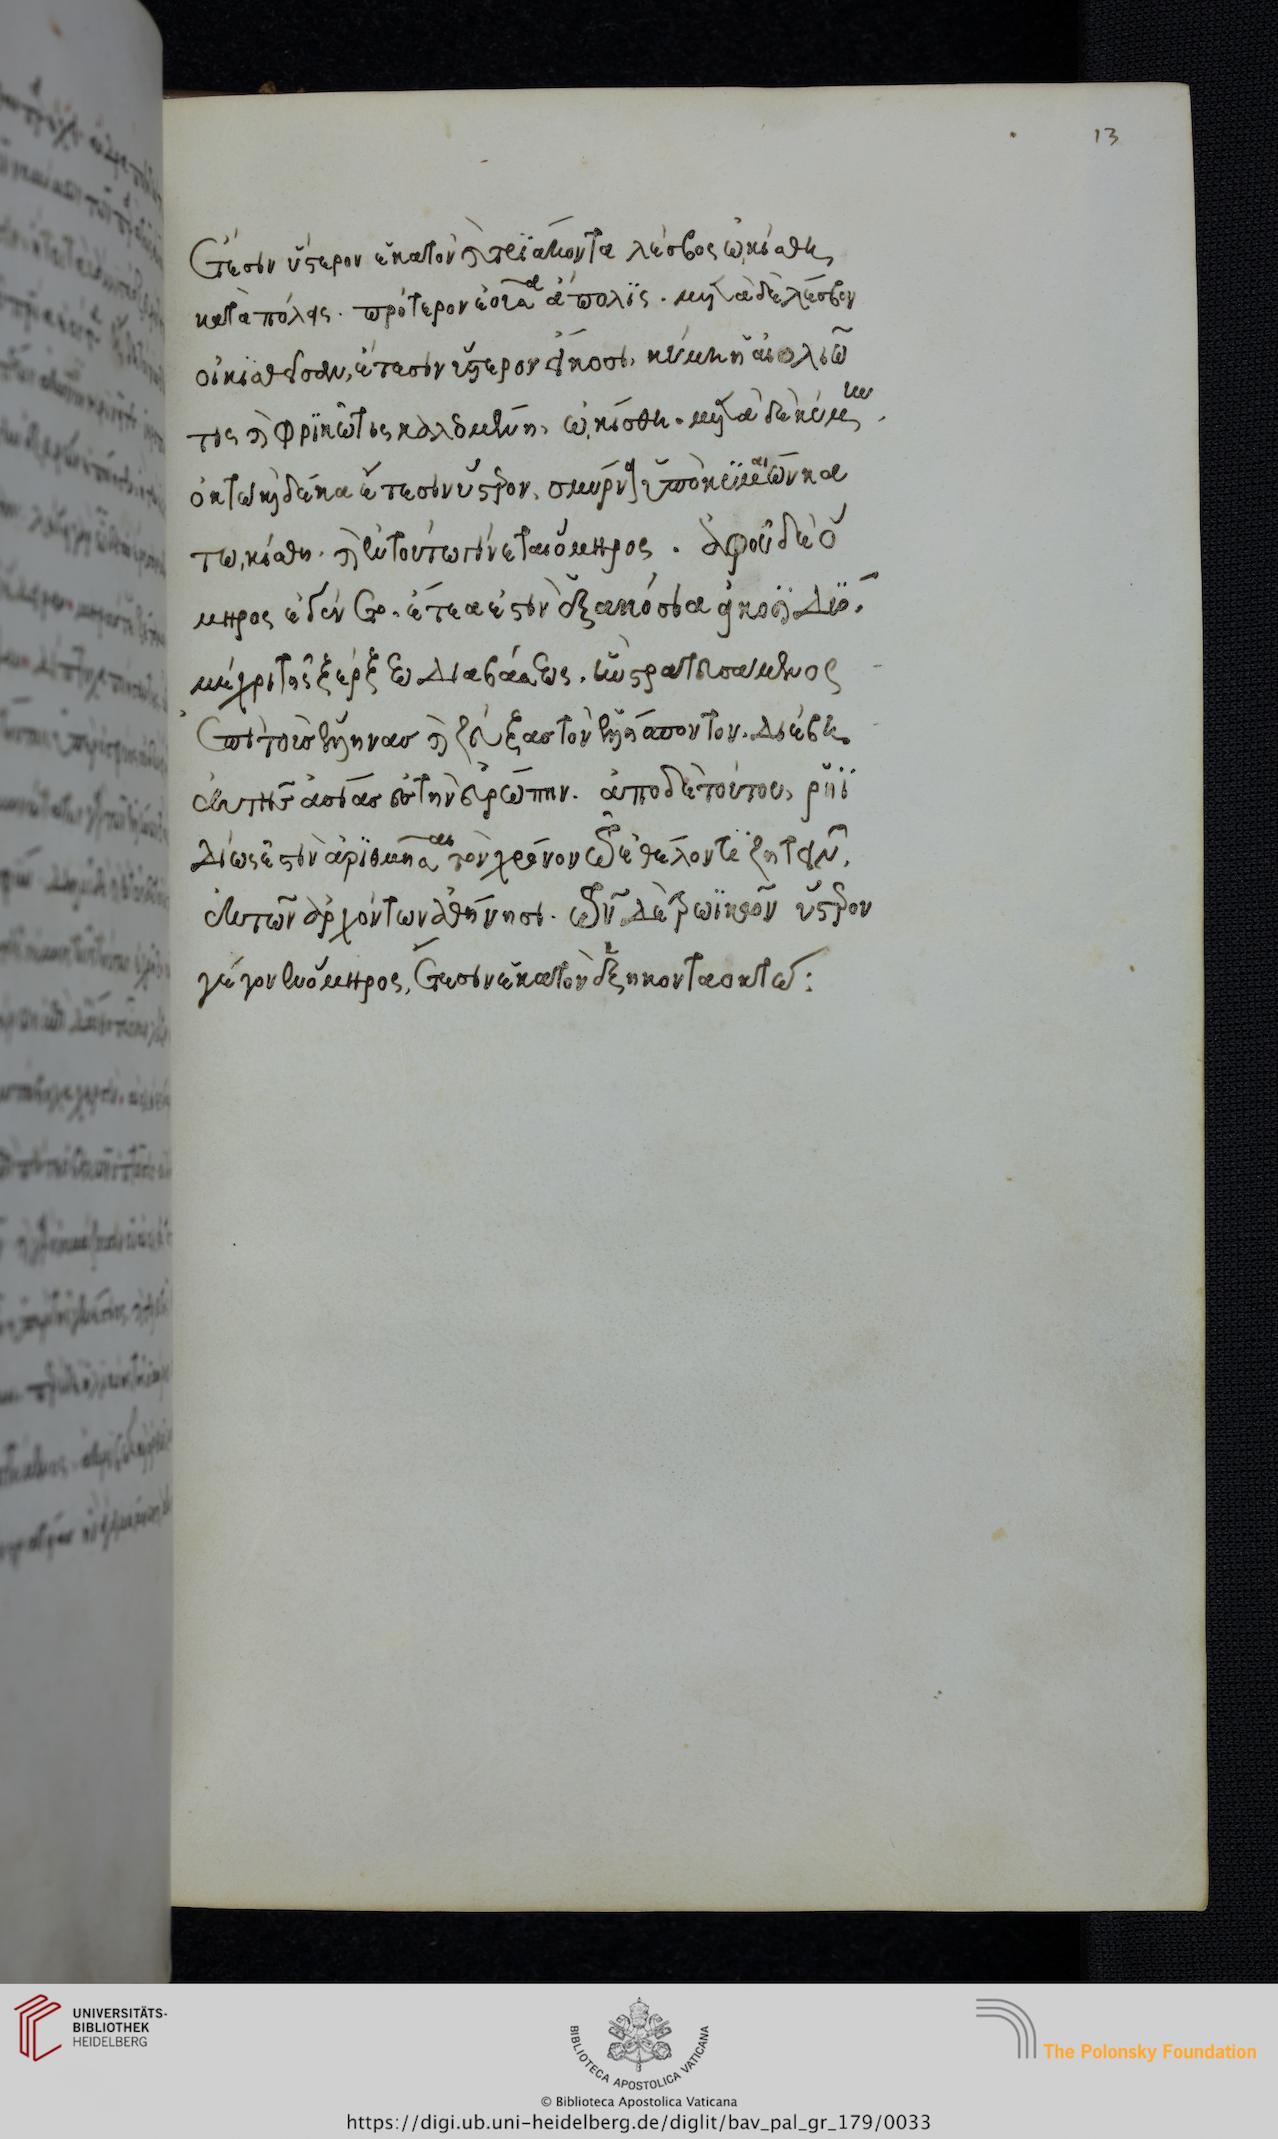 13
ἔτεσιν ὕστερον ἑκατὸν καὶ τριάκοντα λέσβος ὠκίσθη
κατὰ πόλεις. πρότερον ἐοῦσα ἄπολις. μετὰ δὲ λέσβον
οἰκισθεῖσαν, ἔτεσιν ὕστερον εἴκοσι, κύμη ἡ αἰολιῶ
τις καὶ φρικῶτις καλεομένη, ὠκίσθη. μετὰ δὲ κύμην
ὀκτωκαίδεκα ἔτεσιν ὕστερον, σμύρνα ὑπὸ κυμαίων κα
τωκίσθη. καὶ ἐν τούτω γίνεται ὅμηρος. ἀφοῦ δὲ ὅ
μηρος ἐγένετο. ἔτεά ἐστιν ἑξακόσια εἴκοσι δύο.
μέχρι τῆς ξέρξεω διαβάσεως. ἣν στρατευσάμενος
ἐπὶ τοὺς ἕλληνας καὶ ζεύξας τὸν ἑλλήσποντον. διέβη
ἐκ τῆς ἀσίας ἐς τὴν εὐρώπην. ἀπὸ δὲ τούτου, ῥηϊ
δίως ἐστὶν ἀριθμῆσαι τὸν χρόνον τῶ ἐθέλοντι ζητεῖν,
ἐκ τῶν ἀρχόντων ἀθήνησι. τῶν δὲ τρωϊκῶν ὕστερον
γέγονεν ὅμηρος, ἔτεσιν ἑκατὸν ἑξήκοντα ὀκτώ:
UNIVERSITÄTS-
BIBLIOTHEK
HEIDELBERG
BIBLIOTECA APOSTOLICA VATICANA
© Biblioteca Apostolica Vaticana
The Polonsky Foundation
https://digi.ub.uni-heidelberg.de/diglit/bav_pal_gr_179/0033